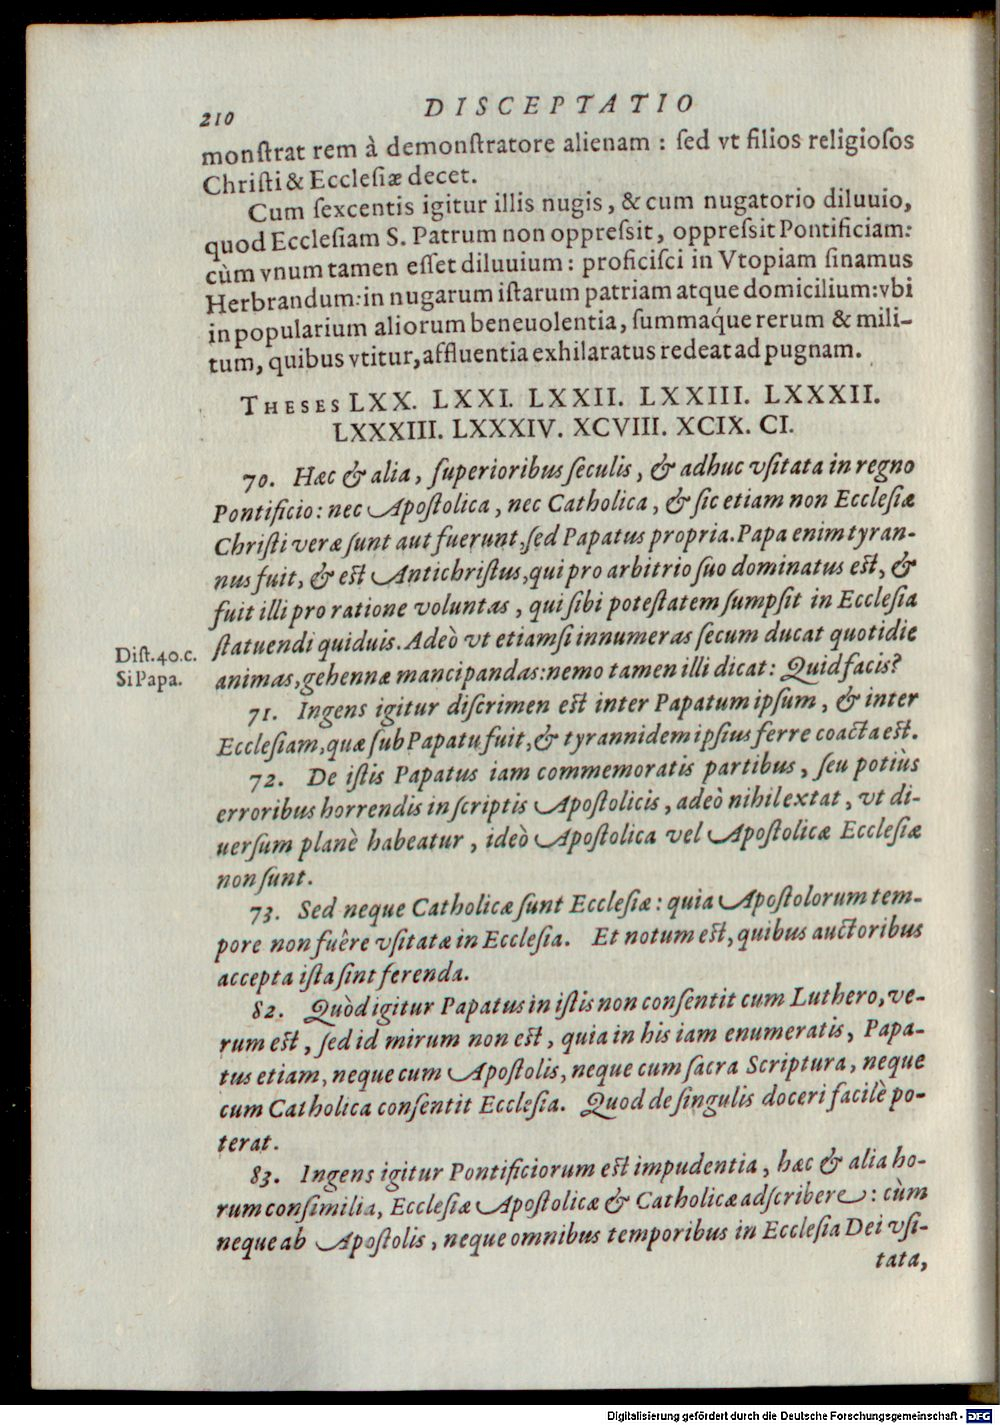 210 DISCEPTATIO
monſtrat rem à demonſtratore alienam : ſed vt filios religioſos
Chriſti & Eccleſiæ decet.
Cum ſexcentis igitur illis nugis, & cum nugatorio diluuio,
quod Eccleſiam S. Patrum non oppreſsit, oppreſsit Pontificiam:
cùm vnum tamen eſſet diluuium : proficiſci in Vtopiam ſinamus
Herbrandum: in nugarum iſtarum patriam atque domicilium: vbi
in popularium aliorum beneuolentia, ſummaq́ue rerum & mili-
tum, quibus vtitur, affluentia exhilaratus redeat ad pugnam.
THESES LXX. LXXI. LXXII. LXXIII. LXXXII.
LXXXIII. LXXXIV. XCVIII. XCIX. CI.
70. Hæc & alia, ſuperioribus ſeculis, & adhuc vſitata in regno
Pontificio: nec Apoſtolica, nec Catholica, & ſic etiam non Eccleſiæ
Chriſti veræ ſunt aut fuerunt, ſed Papatus propria. Papa enim tyran-
nus fuit, & eſt Antichriſtus, qui pro arbitrio ſuo dominatus eſt, &
fuit illi pro ratione voluntas, qui ſibi poteſtatem ſumpſit in Eccleſia
ſtatuendi quiduis. Adeò vt etiamſi innumeras ſecum ducat quotidie
animas, gehennæ mancipandas: nemo tamen illi dicat: Quid facis?
Diſt. 40. c.
Si Papa.
71. Ingens igitur diſcrimen eſt inter Papatum ipſum, & inter
Eccleſiam, quæ ſub Papatu fuit, & tyrannidem ipſius ferre coacta eſt.
72. De iſtis Papatus iam commemoratis partibus, ſeu potiùs
erroribus horrendis in ſcriptis Apoſtolicis, adeò nihil extat, vt di-
uerſum planè habeatur, ideò Apoſtolica vel Apoſtolicæ Eccleſiæ
non ſunt.
73. Sed neque Catholicæ ſunt Eccleſiæ: quia Apoſtolorum tem-
pore non fuêre vſitatæ in Eccleſia. Et notum eſt, quibus auctoribus
accepta iſta ſint ferenda.
82. Quòd igitur Papatus in iſtis non conſentit cum Luthero, ve-
rum eſt, ſed id mirum non eſt, quia in his iam enumeratis, Papa-
tus etiam, neque cum Apoſtolis, neque cum ſacra Scriptura, neque
cum Catholica conſentit Eccleſia. Quod de ſingulis doceri facilè po-
terat.
83. Ingens igitur Pontificiorum eſt impudentia, hæc & alia ho-
rum conſimilia, Eccleſiæ Apoſtolicæ & Catholicæ adſcribere: cùm
neque ab Apoſtolis, neque omnibus temporibus in Eccleſia Dei vſi-
tata,
Digitalisierung gefördert durch die Deutsche Forschungsgemeinschaft - DFG